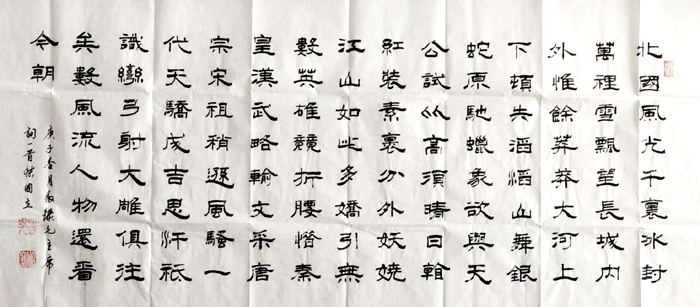 北國風光千裏冰封
萬裡雪飄望長城内
外惟餘莽莽大河上
下頓失滔滔山舞銀
蛇原馳蠟象欲與天
公試比高須晴日看
紅裝素裹分外妖嬈
江山如此多嬌引無
數英雄競折腰惜秦
皇漢武略輸文采唐
宗宋祖稍遜風騷一
代天驕成吉思汗祇
識彎弓射大雕俱往
矣數風流人物還看
今朝
庚子月毛主席
詞一首國立